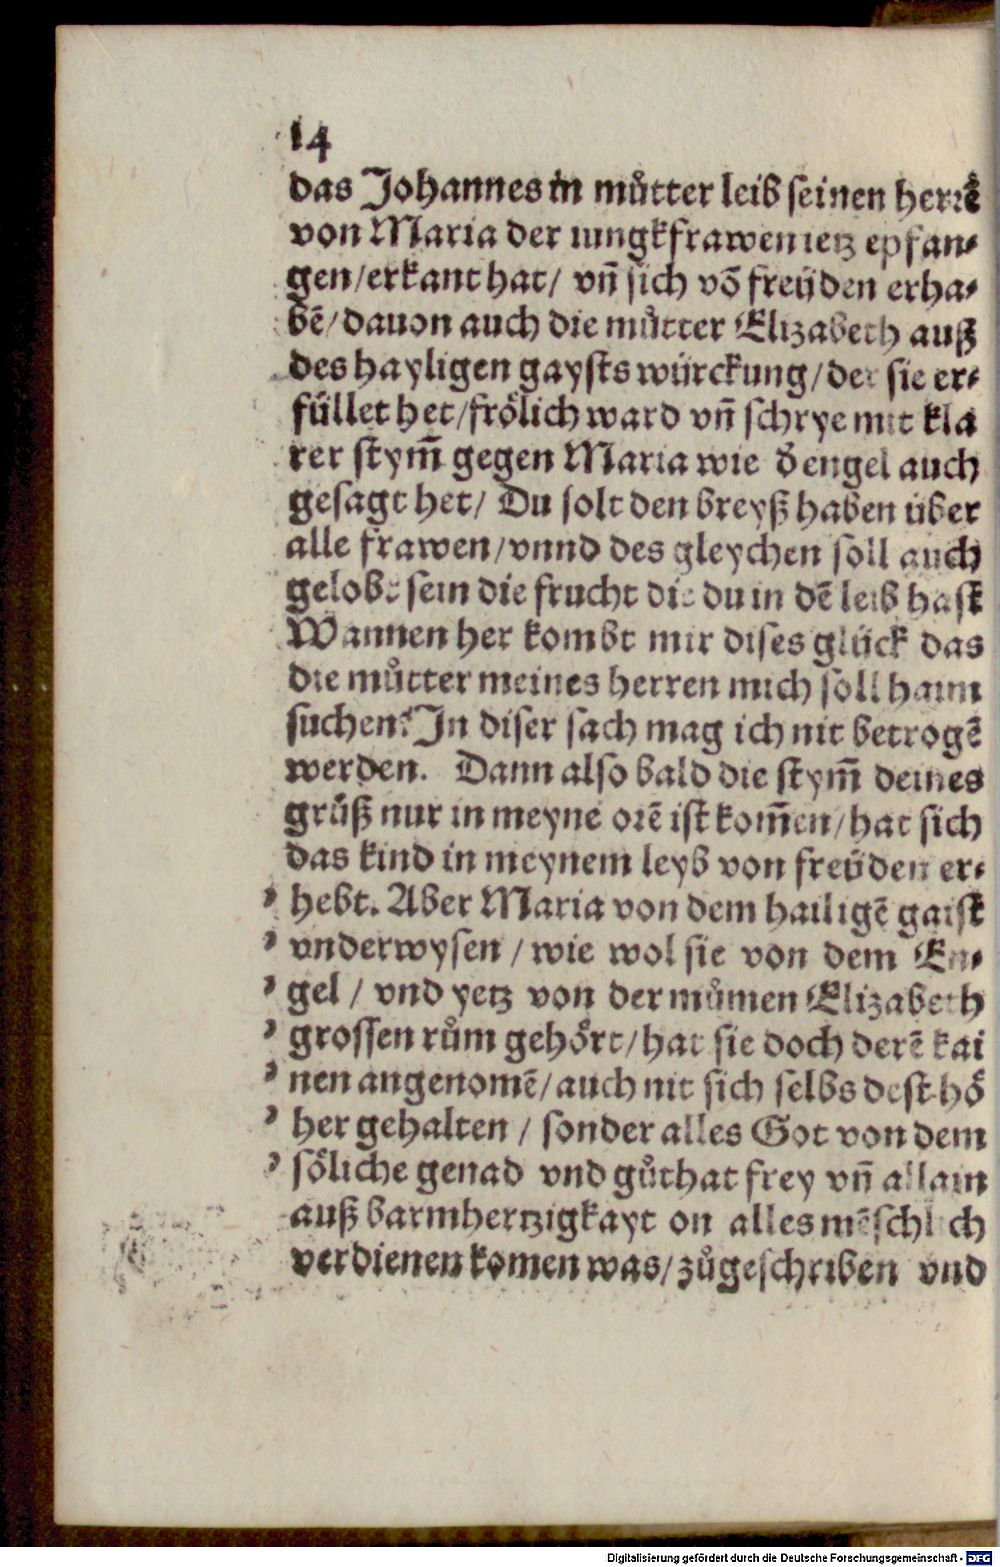 14
das Johannes in můtter leib seinen herrē
von Maria der iungkfrawen ietz epfan⸗
gen/erkant hat/ vn̄ sich vō freÿden erha⸗
bē/dauon auch die můtter Elizabeth auß
des hayligen gaysts würckung/der sie er⸗
füllet het/frölich ward vn̄ schrye mit kla
rer stym̄ gegen Maria wie d̓ engel auch
gesagt het/ Du solt den breyß haben über
alle frawen/vnnd des gleychen soll auch
gelobt sein die frucht die du in dē leib hast
Wannen her kombt mir dises glück das
die můtter meines herren mich soll haim
suchen? In diser sach mag ich nit betrogē
werden. Dann also bald die stym̄ deines
grůß nur in meyne orē ist kom̄en/hat sich
das kind in meynem leyb von freÿden er⸗
hebt. Aber Maria von dem hailigē gaist
vnderwysen / wie wol sie von dem En⸗
gel / vnd yetz von der můmen Elizabeth
grossen rům gehört/hat sie doch derē kai
nen angenomē/auch nit sich selbs dest hö
her gehalten / sonder alles Got von dem
söliche genad vnd gůthat frey vn̄ allain
auß barmhertzigkayt on alles mēschlich
verdienen komen was/zůgeschriben vnd
Digitalisierung gefördert durch die Deutsche Forschungsgemeinschaft - DFG